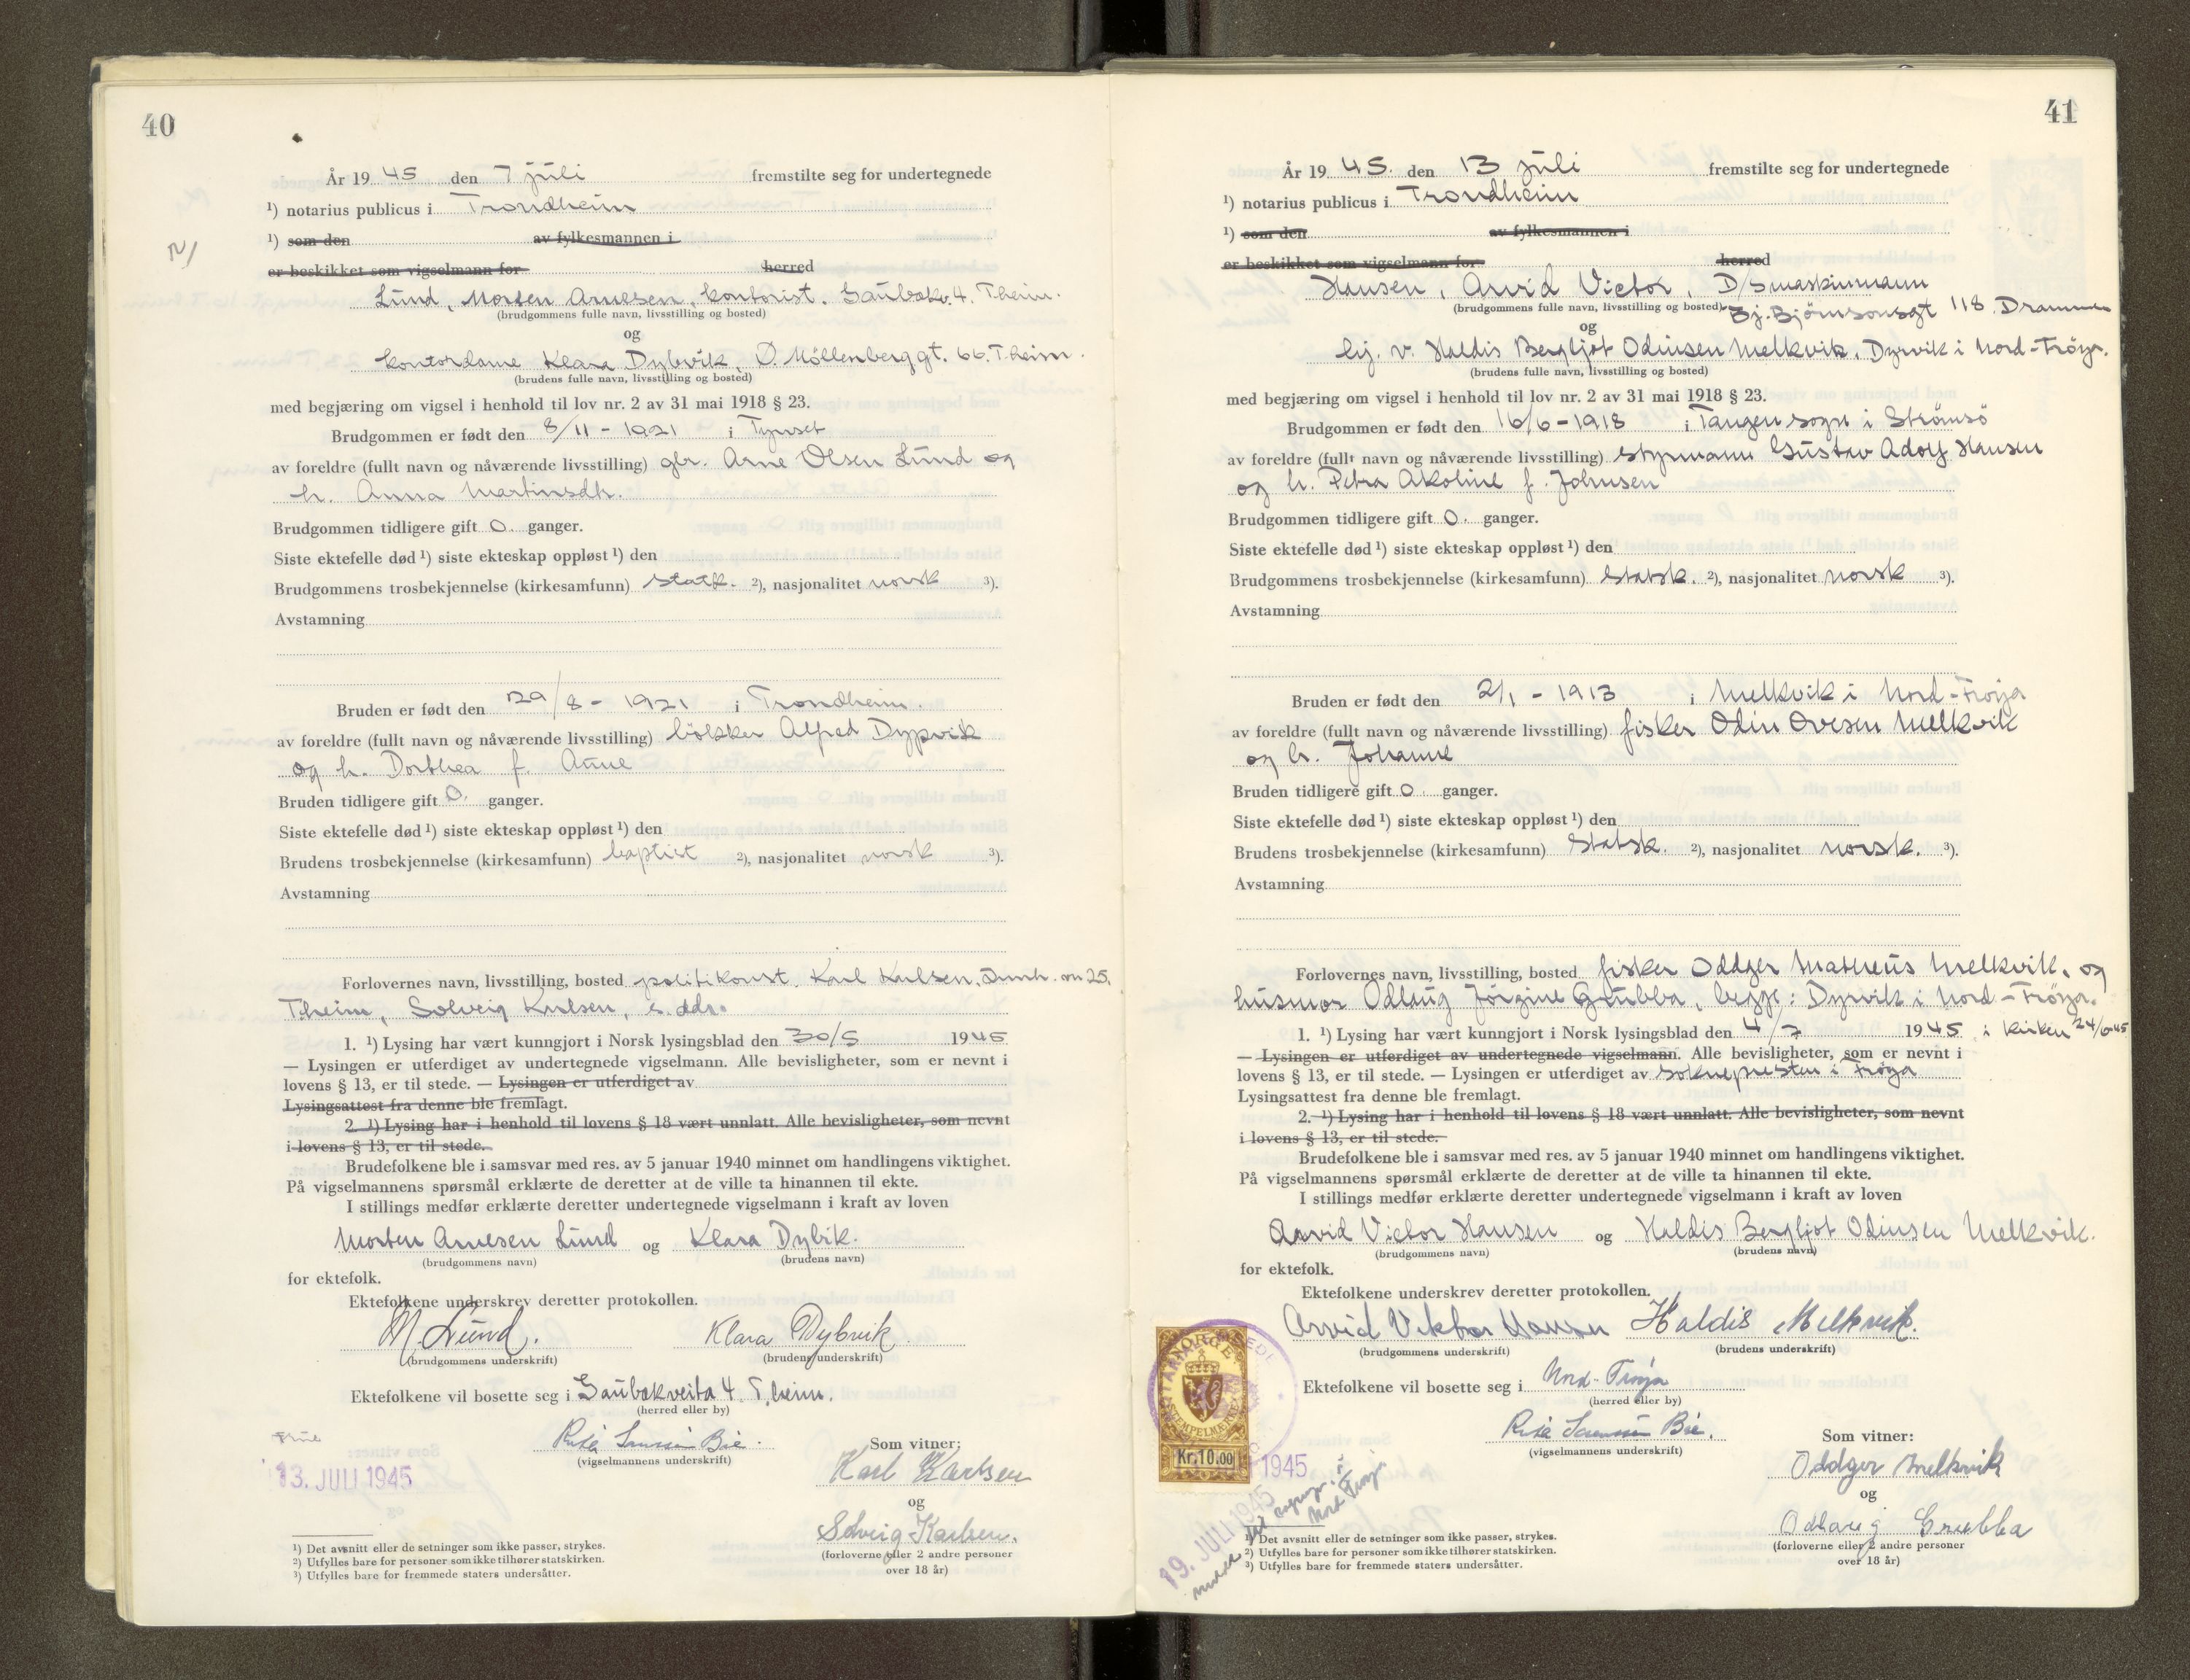 40
År 1945 den 7 juli fremstilte seg for undertegnede
¹) notarius publicus i Trondheim
¹) som den av fylkesmannen i
er beskikket som vigselmann for herred
Lund, Morten Arnesen, kontorist. Gaubekv. 4. T.heim.
(brudgommens fulle navn, livsstilling og bosted)
og
kontordame Klara Dybvik, Ø. Möllenberggt. 66. T.heim.
(brudens fulle navn, livsstilling og bosted)
med begjæring om vigsel i henhold til lov nr. 2 av 31 mai 1918 § 23.
Brudgommen er født den 8/11 - 1921 i Tynset
av foreldre (fullt navn og nåværende livsstilling) gbr. Arne Olsen Lund og
h. Anna Martinsdtr.
Brudgommen tidligere gift 0. ganger.
Siste ektefelle død ¹) siste ekteskap oppløst ¹) den
Brudgommens trosbekjennelse (kirkesamfunn) statk. ²), nasjonalitet norsk ³).
Avstamning
Bruden er født den 29/8 - 1921 i Trondheim.
av foreldre (fullt navn og nåværende livsstilling) bökker Alfred Dypvik
og h. Dorthea f. Aune
Bruden tidligere gift 0. ganger.
Siste ektefelle død ¹) siste ekteskap oppløst ¹) den
Brudens trosbekjennelse (kirkesamfunn) baptist ²), nasjonalitet norsk ³).
Avstamning
Forlovernes navn, livsstilling, bosted politikonst. Karl Karlsen, 25.
T.heim, Solveig Karlsen, s. adr.
1. ¹) Lysing har vært kunngjort i Norsk lysingsblad den 30/5 1945
— Lysingen er utferdiget av undertegnede vigselmann. Alle bevisligheter, som er nevnt i
lovens § 13, er til stede. — Lysingen er utferdiget av
Lysingsattest fra denne ble fremlagt.
2. ¹) Lysing har i henhold til lovens § 18 vært unnlatt. Alle bevisligheter, som nevnt
i lovens § 13, er til stede.
Brudefolkene ble i samsvar med res. av 5 januar 1940 minnet om handlingens viktighet.
På vigselmannens spørsmål erklærte de deretter at de ville ta hinannen til ekte.
I stillings medfør erklærte deretter undertegnede vigselmann i kraft av loven
Morten Arnesen Lund og Klara Dybik.
(brudgommens navn) (brudens navn)
for ektefolk.
Ektefolkene underskrev deretter protokollen.
M. Lund. Klara Dybvik
(brudgommens underskrift) (brudens underskrift)
Ektefolkene vil bosette seg i Gaubekveita 4 T.heim.
(herred eller by)
Bie. Som vitner:
(vigselmannens underskrift)
13. JULI 1945
Karl Karlsen
og
Solveig Karlsen.
(forloverne eller 2 andre personer
over 18 år)
¹) Det avsnitt eller de setninger som ikke passer, strykes.
²) Utfylles bare for personer som ikke tilhører statskirken.
³) Utfylles bare for fremmede staters undersåtter.
41
År 1945. den 13 juli fremstilte seg for undertegnede
¹) notarius publicus i Trondheim
¹) som den av fylkesmannen i
er beskikket som vigselmann for herred
Hansen, Arvid Victor, D/Smaskinmann
(brudgommens fulle navn, livsstilling og bosted) Bj. Björnsonsgt 118. Drammen
og
hj. v. Haldis Bergljot Odinsen Melkvik, Dyrvik i Nord-Fröya.
(brudens fulle navn, livsstilling og bosted)
med begjæring om vigsel i henhold til lov nr. 2 av 31 mai 1918 § 23.
Brudgommen er født den 16/6 - 1918 i Tangen sogn i Strömsö
av foreldre (fullt navn og nåværende livsstilling) styrmann Gustav Adolf Hansen
og h. Petra Akoline f. Johnsen
Brudgommen tidligere gift 0. ganger.
Siste ektefelle død ¹) siste ekteskap oppløst ¹) den
Brudgommens trosbekjennelse (kirkesamfunn) Statsk. ²), nasjonalitet norsk ³).
Avstamning
Bruden er født den 2/1 - 1913 i Melkvik i Nord-Fröya
av foreldre (fullt navn og nåværende livsstilling) fisker Odin Ovesen Melkvik
og h. Johanne
Bruden tidligere gift 0. ganger.
Siste ektefelle død ¹) siste ekteskap oppløst ¹) den
Brudens trosbekjennelse (kirkesamfunn) Statsk. ²), nasjonalitet norsk. ³).
Avstamning
Forlovernes navn, livsstilling, bosted fisker Oddger Matheus Melkvik, og
husmor Odlaug Jörgine Grubba, begge: Dyrvik i Nord-Fröya.
1. ¹) Lysing har vært kunngjort i Norsk lysingsblad den 4/7 1945 i kirken 24/6-45
— Lysingen er utferdiget av undertegnede vigselmann. Alle bevisligheter, som er nevnt i
lovens § 13, er til stede. — Lysingen er utferdiget av soknepresten i Fröya
Lysingsattest fra denne ble fremlagt.
2. ¹) Lysing har i henhold til lovens § 18 vært unnlatt. Alle bevisligheter, som nevnt
i lovens § 13, er til stede.
Brudefolkene ble i samsvar med res. av 5 januar 1940 minnet om handlingens viktighet.
På vigselmannens spørsmål erklærte de deretter at de ville ta hinannen til ekte.
I stillings medfør erklærte deretter undertegnede vigselmann i kraft av loven
Arvid Victor Hansen og Haldis Bergljot Odinsen Melkvik.
(brudgommens navn) (brudens navn)
for ektefolk.
Ektefolkene underskrev deretter protokollen.
Arvid Viktor Hansen Haldis Melkvik.
(brudgommens underskrift) (brudens underskrift)
Ektefolkene vil bosette seg i Nord-Fröya
(herred eller by)
Bie. Som vitner:
(vigselmannens underskrift)
NORGE
STEMPELMERKE
Kr. 10.00
1945
19. JULI 1945
Oddger Melkvik
og
Odlaug Grubba
(forloverne eller 2 andre personer
over 18 år)
¹) Det avsnitt eller de setninger som ikke passer, strykes.
²) Utfylles bare for personer som ikke tilhører statskirken.
³) Utfylles bare for fremmede staters undersåtter.